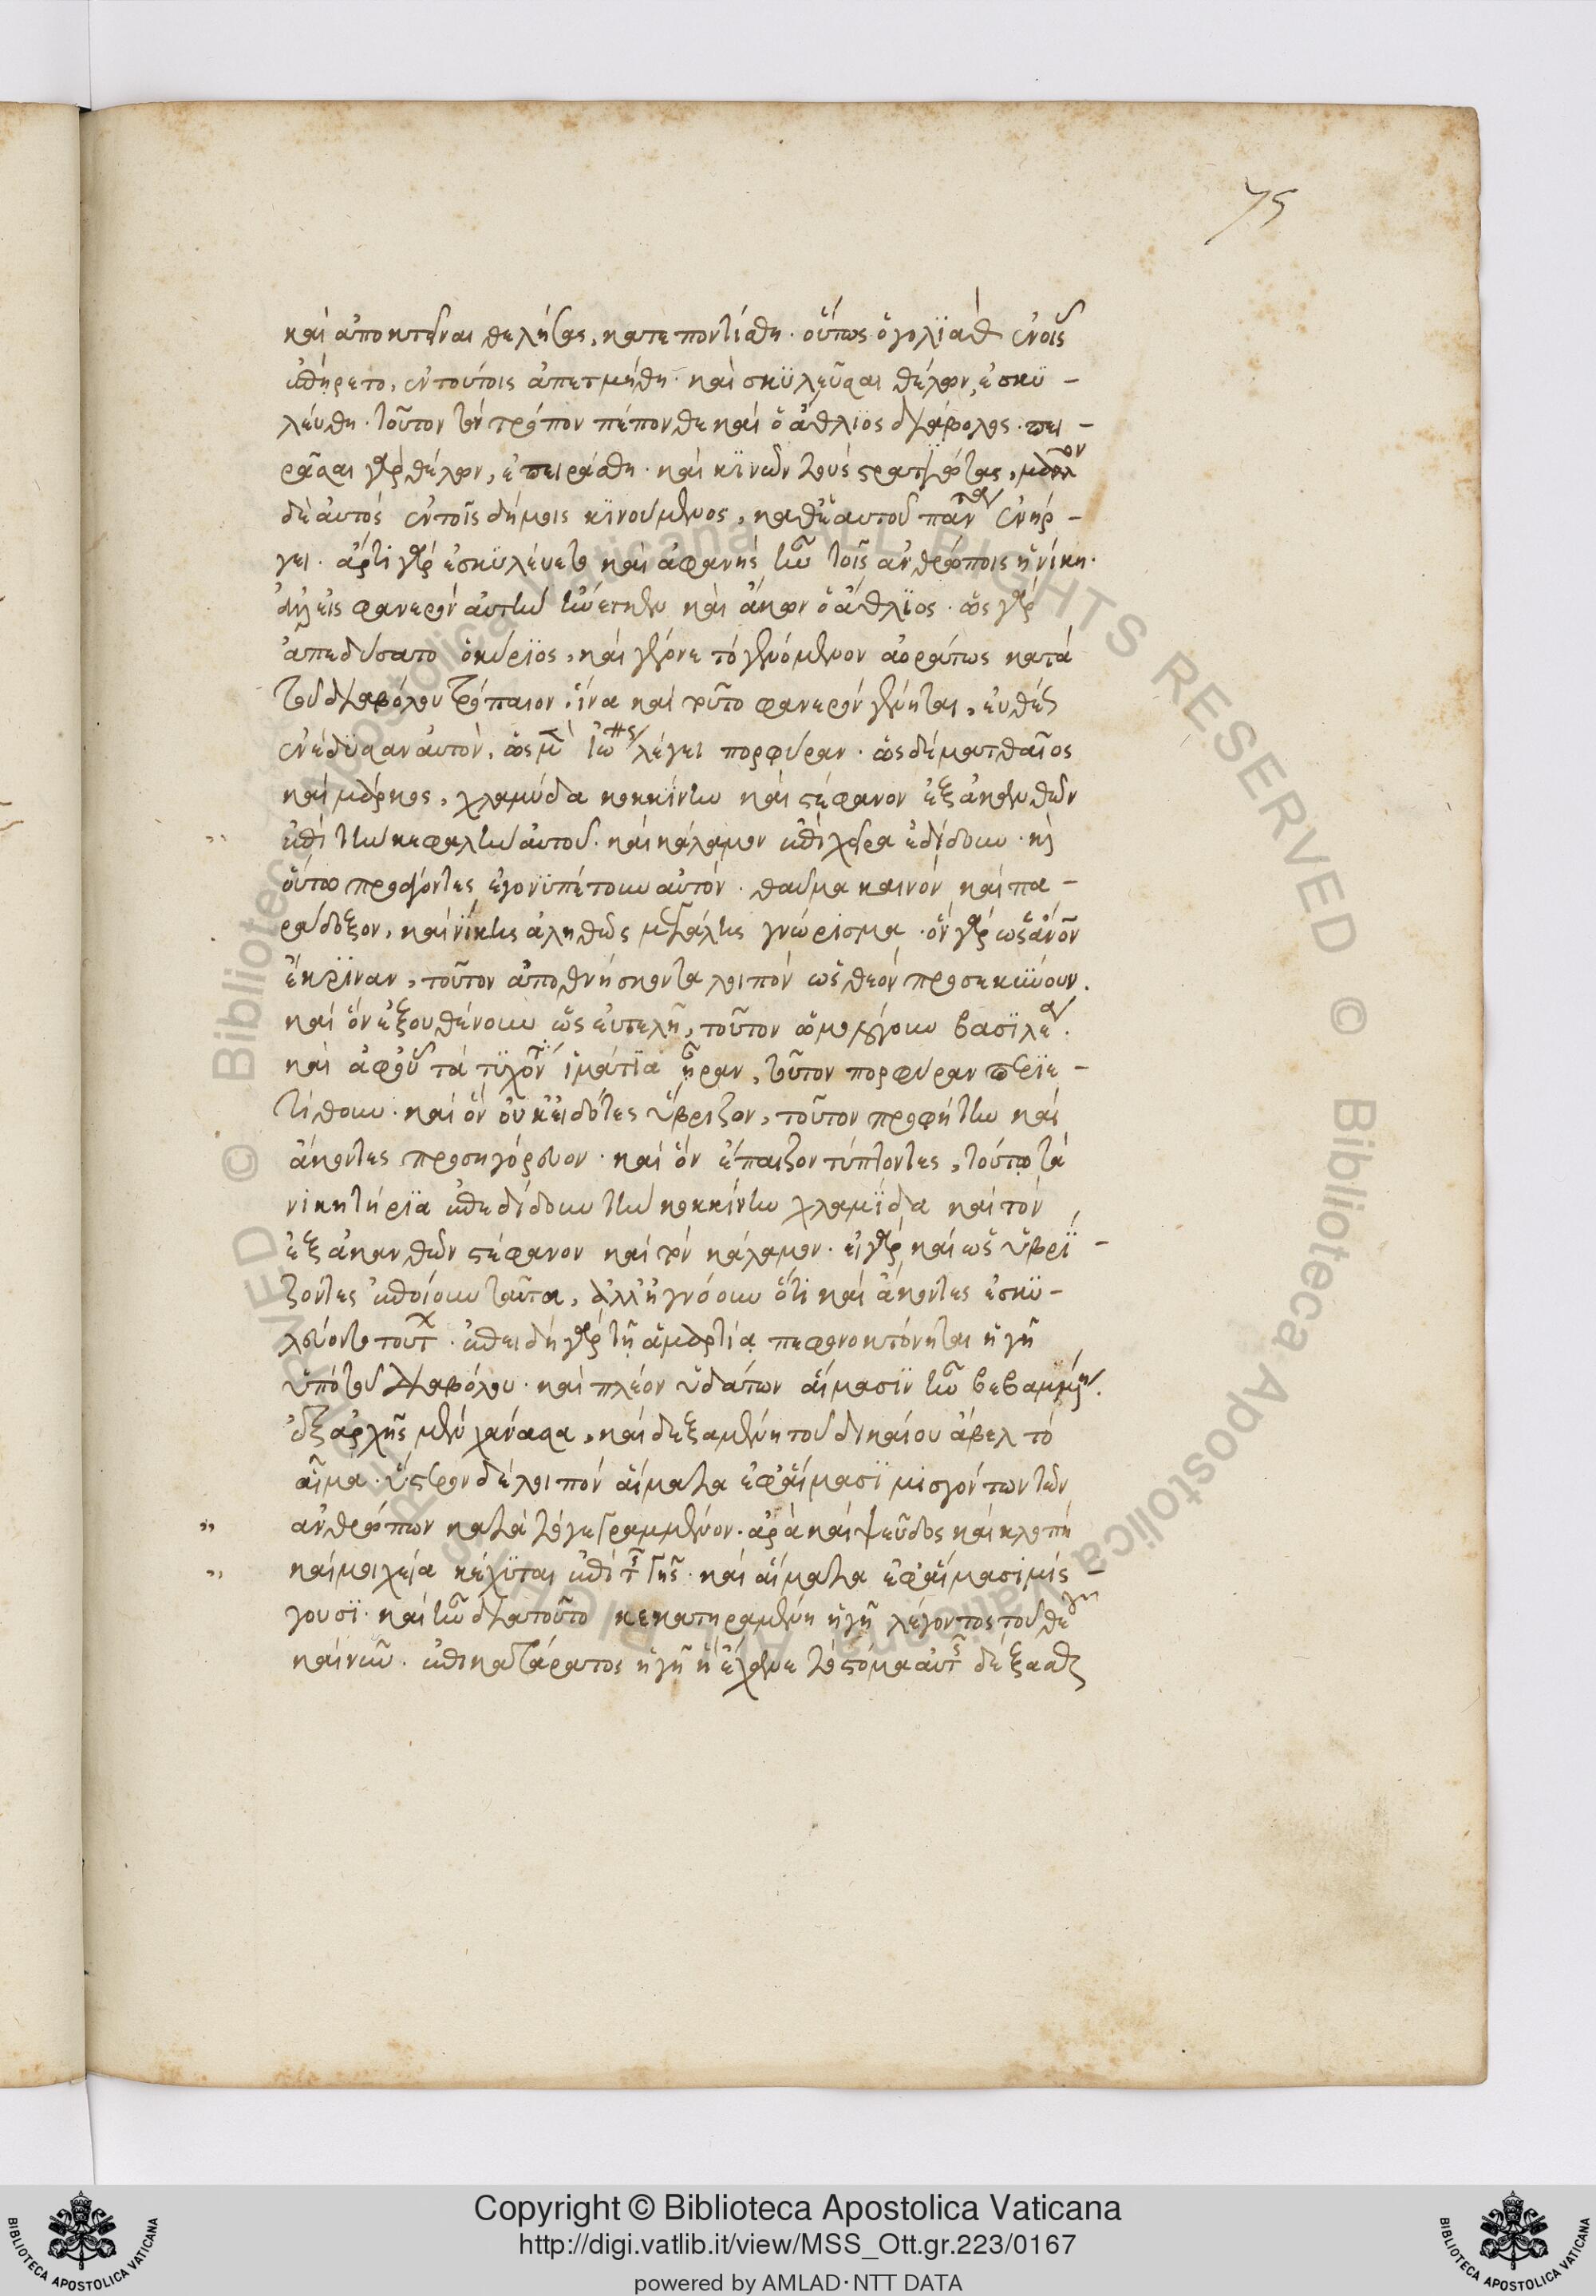 75
καὶ ἀποκτεῖναι θελήσας, κατεποντίσθη. οὕτως ὁ γολϊὰθ ἐν οἷς
ἐπῄρετο, ἐν τούτοις ἀπετμήθη. καὶ σκϋλεῦσαι θέλων, ἐσκϋ -
λεύθη. τοῦτον τὸν τρόπον πέπονθε καὶ ὁ ἄθλϊος διάβολος. πει -
ράσαι γὰρ θέλων, ἐπειράσθη. καὶ κϊνῶν τοὺς στρατϊώτας, μᾶλλον
δὲ αὐτὸς ἐν τοῖς δήμοις κϊνούμενος, καθ' ἑαυτοῦ πάντα ἐνήρ -
γει. ἄρτι γὰρ ἐσκϋλεύετο καὶ ἀφανὴς ἦν τοῖς ἀνθρώποις ἡ νίκη.
ἀλλ' εἰς φανερὸν αὐτὴν ἔστησεν καὶ ἄκων ὁ ἄθλϊος. ὡς γὰρ
ἀπεδύσατο ὁ κύρϊος, καὶ γέγονε τὸ γενόμενον ἀοράτως κατὰ
τοῦ διαβόλου τρόπαιον. ἵνα καὶ τοῦτο φανερὸν γένηται, εὐθὺς
ἐνέδϋσαν αὐτὸν, ὡς μὲν ἰωάννης λέγει πορφύραν. ὡς δὲ ματθαῖος
καὶ μάρκος, χλαμύδα κοκκίνην καὶ στέφανον ἐξ ἀκανθῶν
ἐπὶ τὴν κεφαλὴν αὐτοῦ. καὶ κάλαμον ἐπὶ χεῖρα ἐδίδουν. καὶ
οὕτω προσιόντες ἐγονϋπέτουν αὐτόν. θαῦμα καινὸν καὶ πα -
ράδοξον, καὶ νίκης ἀληθῶς μεγάλης γνώρισμα. ὃν γὰρ ὡς ἄνον
ἔκρϊναν, τοῦτον ἀποθνήσκοντα λοιπὸν ὡς θεὸν προσεκύνουν.
καὶ ὃν ἐξουθένουν ὡς εὐτελῆ, τοῦτον ὡμολόγουν βασϊλέα.
καὶ ἀφ' οὗ τὰ τϋχόντα ἱμάτϊα ἦραν, τοῦτον πορφύραν περϊε -
τίθουν. καὶ ὃν οὐκ εἰδότες ὕβριζον, τοῦτον προφήτην καὶ
ἄκοντες προσηγόρευον. καὶ ὃν ἔπαιζον τύπτοντες, τούτῳ τὰ
νικητήρϊα ἐπεδίδουν τὴν κοκκίνην χλαμΐδα καὶ τὸν
ἐξ ἀκανθῶν στέφανον καὶ τὸν κάλαμον. εἰ γὰρ καὶ ὡς ὑβρΐ -
ζοντες ἐποίουν ταῦτα, ἀλλ' ἠγνόουν ὅτι καὶ ἄκοντες ἐσκϋ -
λεύοντο τούτοις. ἐπειδὴ γὰρ τῇ ἁμαρτίᾳ πεφονοκτόνηται ἡ γῆ
ὑπὸ τοῦ διαβόλου. καὶ πλέον ὑδάτων αἵμασϊν ἦν βεβαμμένη.
ἐξ ἀρχῆς μὲν χανοῦσα, καὶ δεξαμένη τοῦ δικαίου ἄβελ τὸ
αἷμα. ὕστερον δὲ λοιπὸν αἵματα ἐφ' αἵμασϊ μισγόντων τῶν
ἀνθρώπων κατὰ τὸ γεγραμμένον. ἀρὰ καὶ ψεῦδος καὶ κλοπὴ
καὶ μοιχεία κέχϋται ἐπὶ τῆς γῆς. καὶ αἵματα ἐφ' αἵμασι μίσ -
γουσϊ. καὶ ἦν διὰ τοῦτο κεκατηραμένη ἡ γῆ λέγοντος τοῦ θεοῦ
κάϊν. ἐπικατάρατος ἡ γῆ ἣ ἔχανε τὸ στόμα αὐτῆς δέξασθαι
Copyright © Biblioteca Apostolica Vaticana
http://digi.vatlib.it/view/MSS_Ott.gr.223/0167
powered by AMLAD·NTT DATA